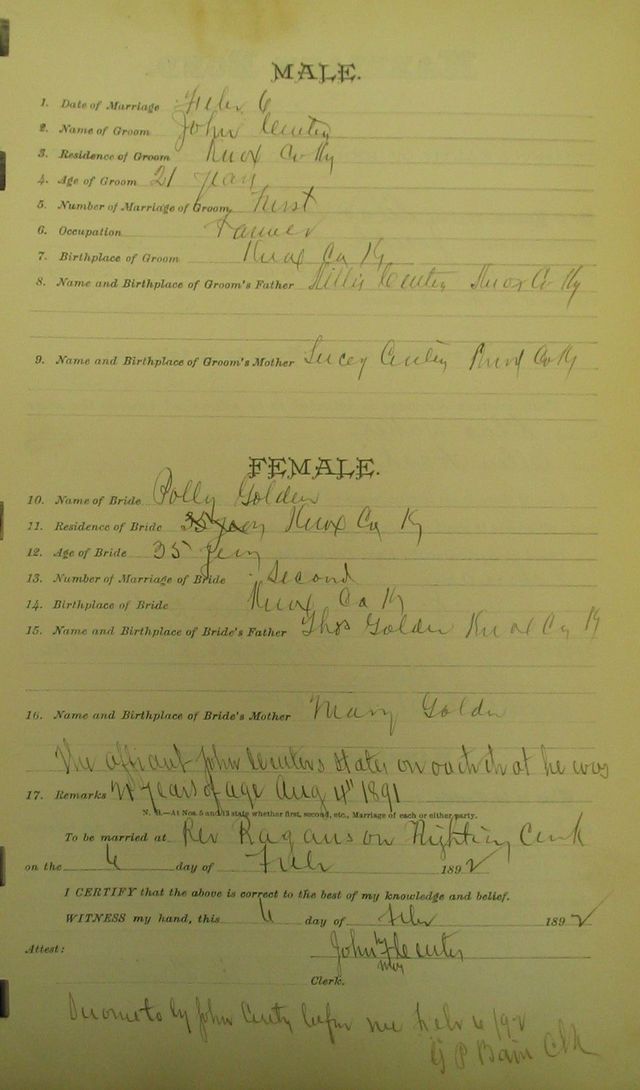 MALE.
1. Date of Marriage Feby 6
2. Name of Groom John
3. Residence of Groom Knox Co Ky
4. Age of Groom 21 years
5. Number of Marriage of Groom, First
6. Occupation Farmer
7. Birthplace of Groom Knox Co Ky
8. Name and Birthplace of Groom's Father Knox Co Ky
9. Name and Birthplace of Groom's Mother Lucey Knox Co Ky
FEMALE.
10. Name of Bride Polly Golden
11. Residence of Bride Knox Co Ky
12. Age of Bride 35 years
13. Number of Marriage of Bride Second
14. Birthplace of Bride Knox Co Ky
15. Name and Birthplace of Bride's Father Thos Golden Knox Co Ky
16. Name and Birthplace of Bride's Mother Mary Golden
The affiant John states on oath that he was
17. Remarks years of age Aug 4" 1891
N. B.—At Nos. 5 and 13 state whether first, second, etc., Marriage of each or either party.
To be married at Rev on
on the 6 day of Feby 1892
I CERTIFY that the above is correct to the best of my knowledge and belief.
WITNESS my hand, this 6 day of Feby 1892
John
Attest:
Clerk.
Sworn to by John before me Feby 6/92
G P Bain Clk